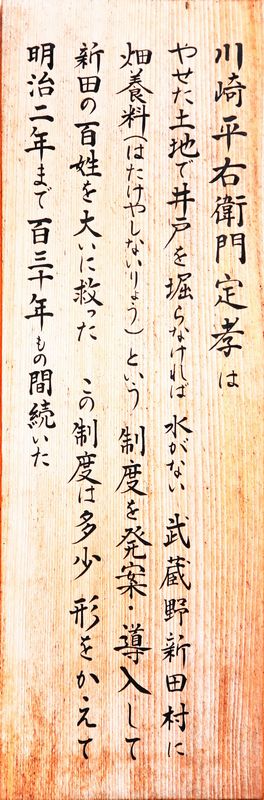 川崎平右衛門定孝は
やせた土地で井戸を堀らなければ 水がない 武蔵野新田村に
畑養料(はたけやしないりょう)という 制度を発案・導入して
新田の百姓を大いに救った この制度は多少 形をかえて
明治二年まで百三十年もの間続いた